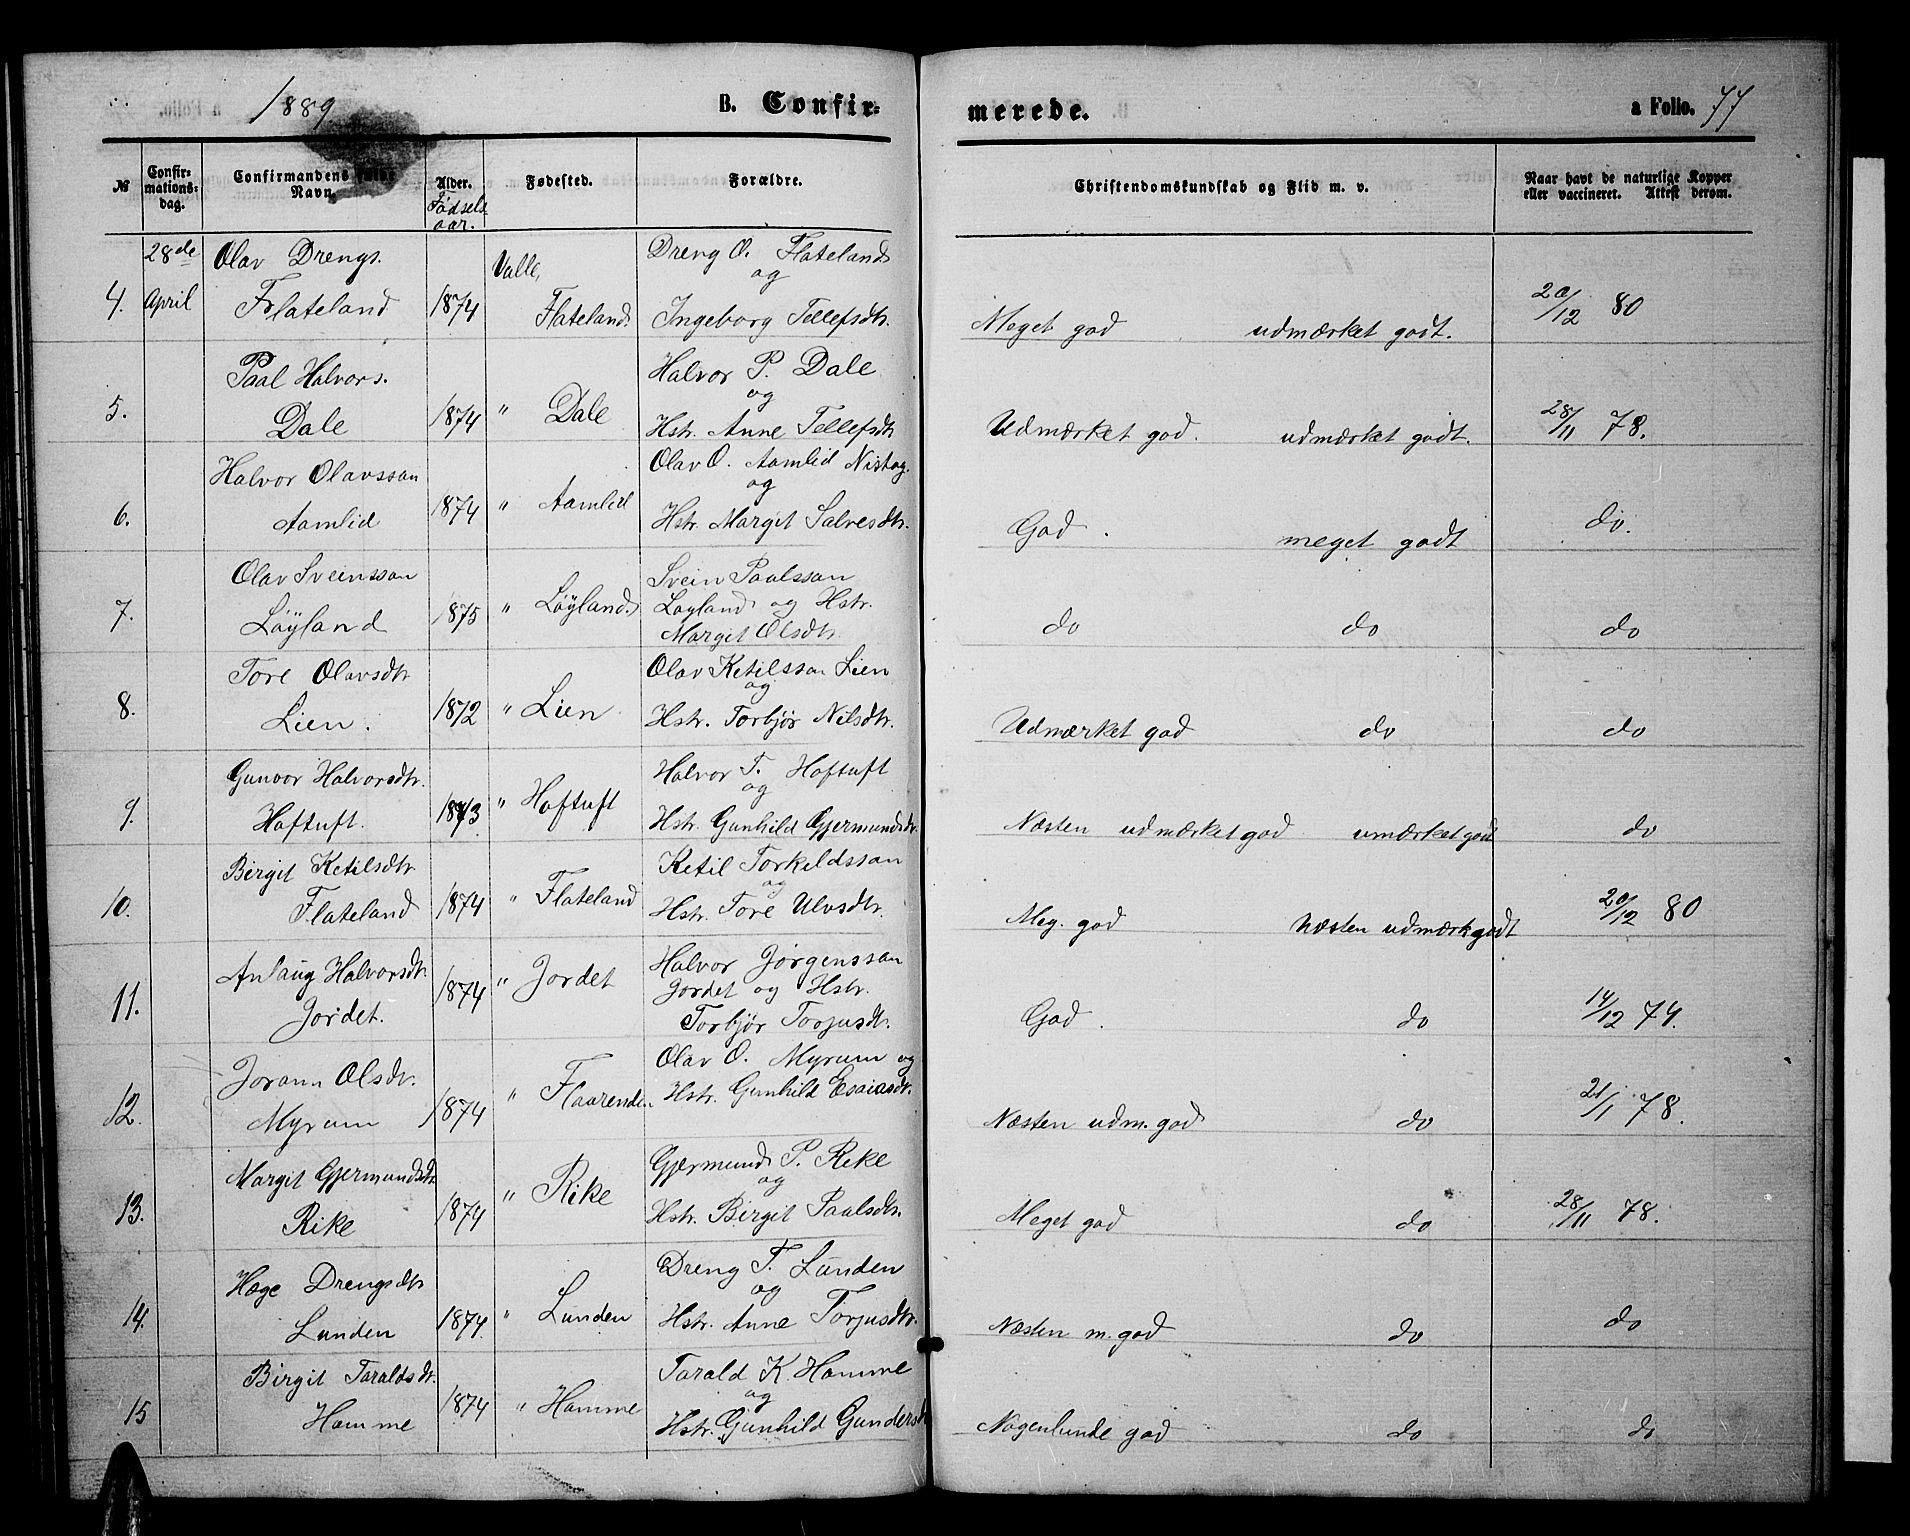 1889
B. Confir=
merede.
a Folio. 77
№
Confir-
mations-
dag.
Confirmandens fulde
Navn.
Alder.
Fødsels
aar.
Fødested.
Forældre.
Christendomskundskab og Flid m. v.
Naar havt de naturlige Kopper
eller vaccineret. Attest derom.
28de
April
4.
Olav Drengs.
Flateland
1874
Valle,
Flateland
Dreng O. Flateland
og
Ingeborg Tellefsdtr.
Meget god
udmærket godt.
20/12 80
5.
Paal Halvors.
Dale
1874
" Dale
Halvor P. Dale
og
Hstr. Anne Tellefsdtr
Udmærket god.
udmærket godt.
28/11 78.
6.
Halvor Olavssan
Aamlid
1874
" Aamlid
Olav O. Aamlid Nistog.
og
Hstr. Margit Salvesdtr.
God.
meget godt
do.
7.
Olav Sveinssan
Løyland
1875
" Løyland
Svein Paalssan
Løyland og Hstr.
Margit Olsdtr.
do
do
do
8.
Tore Olavsdtr
Lien.
1872
" Lien
Olav Ketilssan Lien
og
Hstr. Torbjør Nilsdtr.
Udmærket god
do
do
9.
Gunvor Halvorsdtr.
Hoftuft.
1873
" Hoftuft
Halvor T. Hoftuft
og
Hstr. Gunhild Gjermundsdtr.
Næsten udmærket god
umærket godt
do
10.
Birgit Ketilsdtr.
Flateland
1874
" Flateland
Ketil Torkildssan
og
Hstr. Tore Ulvsdtr.
Meg. god
Næsten udmærk godt
20/12 80
11.
Anlaug Halvorsdtr.
Jordet.
1874
" Jordet
Halvor Jørgenssan
Jordet og Hstr.
Torbjør Torjusdtr.
God.
do
14/12 74.
12.
Jorann Olsdtr.
Myrum
1874
" Flaarenden
Olav O. Myrum og
Hstr. Gunhild Esaiasdtr.
Næsten udm. god
do
21/1 78.
13.
Margit Gjermundsdtr
Rike
1874
" Rike
Gjermund P. Rike
og
Hstr. Birgit Paalsdtr.
Meget god
do
28/11 78.
14.
Hæge Drengsdtr
Lunden
1874.
" Lunden
Dreng T. Lunden
og
Hstr. Anne Torjusdtr.
Næsten m. god
do
do
15
Birgit Taraldsdtr.
Homme
1874
" Homme
Tarald K. Homme
og
Hstr. Gunhild Gundersd
Nogenlunde god
do
do